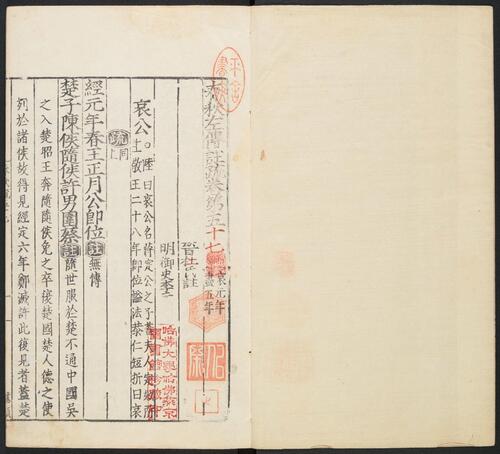 春秋左傳註疏卷第五十七 起哀元年盡五年
晉杜氏註
明御史李
哀公 ○陸曰哀公名蔣定公之子蓋夫人定姒所
生敬王二十八年卽位諡法恭仁短折曰哀
疏 同上
經元年春王正月公卽位 註 無傳
楚子陳侯隨侯許男圍蔡 註 隨世服於楚不通中國吳
之入楚昭王奔隨隨侯免之卒復楚國楚人德之使
列於諸侯故得見經定六年鄭滅許此復見者蓋楚
哈佛大學哈佛燕京
圖書館珍藏印